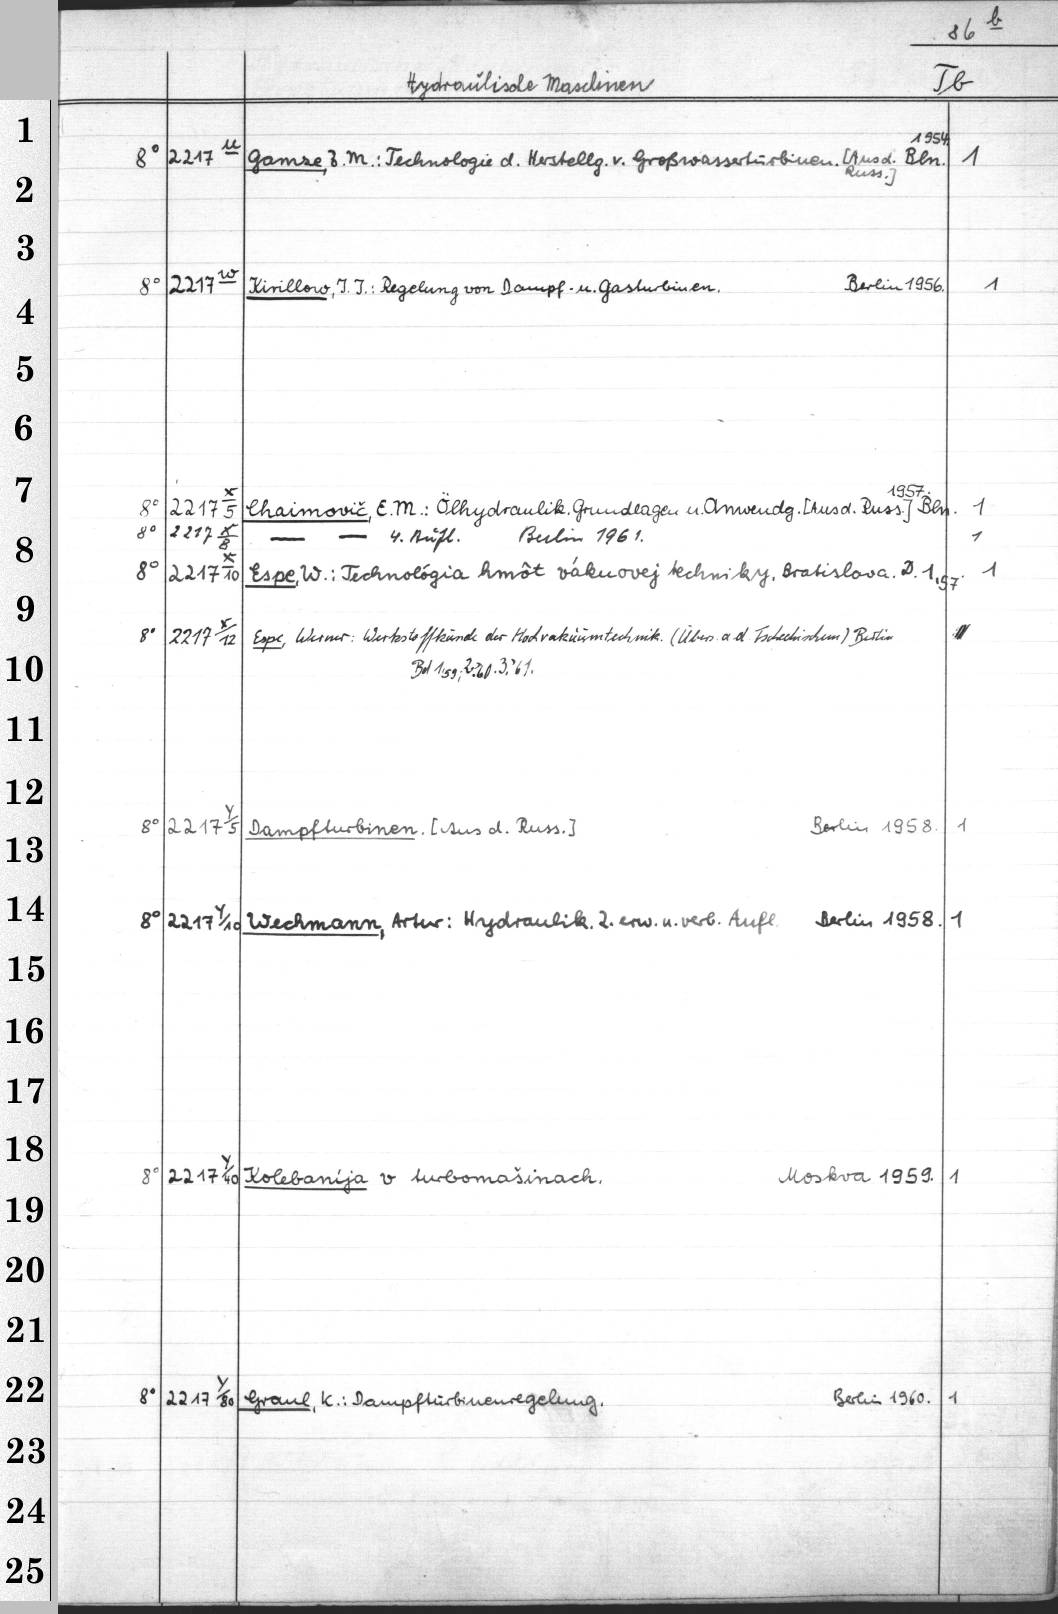 86 b
Hydraulische Maschinen Tb
1
1954.
8° 2217 u Gamze, Z. M.: Technologie d. Herstellg. v. Großwasserturbinen. [Aus d. Bln. 1
Russ.]
2
3
8° 2217 w Kirillow, I. I.: Regelung von Dampf- u. Gasturbinen. Berlin 1956. 1
4
5
6
7
1957.
8° 2217 x/5 Chaimovič, E. M.: Ölhydraulik. Grundlagen u. Anwendg. [Aus d. Russ.] Bln. 1
8° 2217 x/8 — — 4. Aufl. Berlin 1961. 1
8
8° 2217 x/10 Espe, W.: Technológia hmôt vákuovej techniky. Bratislava. D. 1.57. 1
9
8° 2217 x/12 Espe, Werner: Werkstoffkunde der Hochvakuumtechnik. (Übers. a d Tschechischen) Berlin
10
Bd 1.'59; 2.'60. 3.'61.
11
12
8° 2217 Y/5 Dampfturbinen. [Aus d. Russ.] Berlin 1958. 1
13
14
8° 2217 Y/10 Wechmann, Artur: Hydraulik. 2. erw. u. verb. Aufl. Berlin 1958. 1
15
16
17
18
8° 2217 Y/40 Kolebanija v turbomašinach. Moskva 1959. 1
19
20
21
22
8° 2217 Y/80 Graul, K.: Dampfturbinenregelung. Berlin 1960. 1
23
24
25